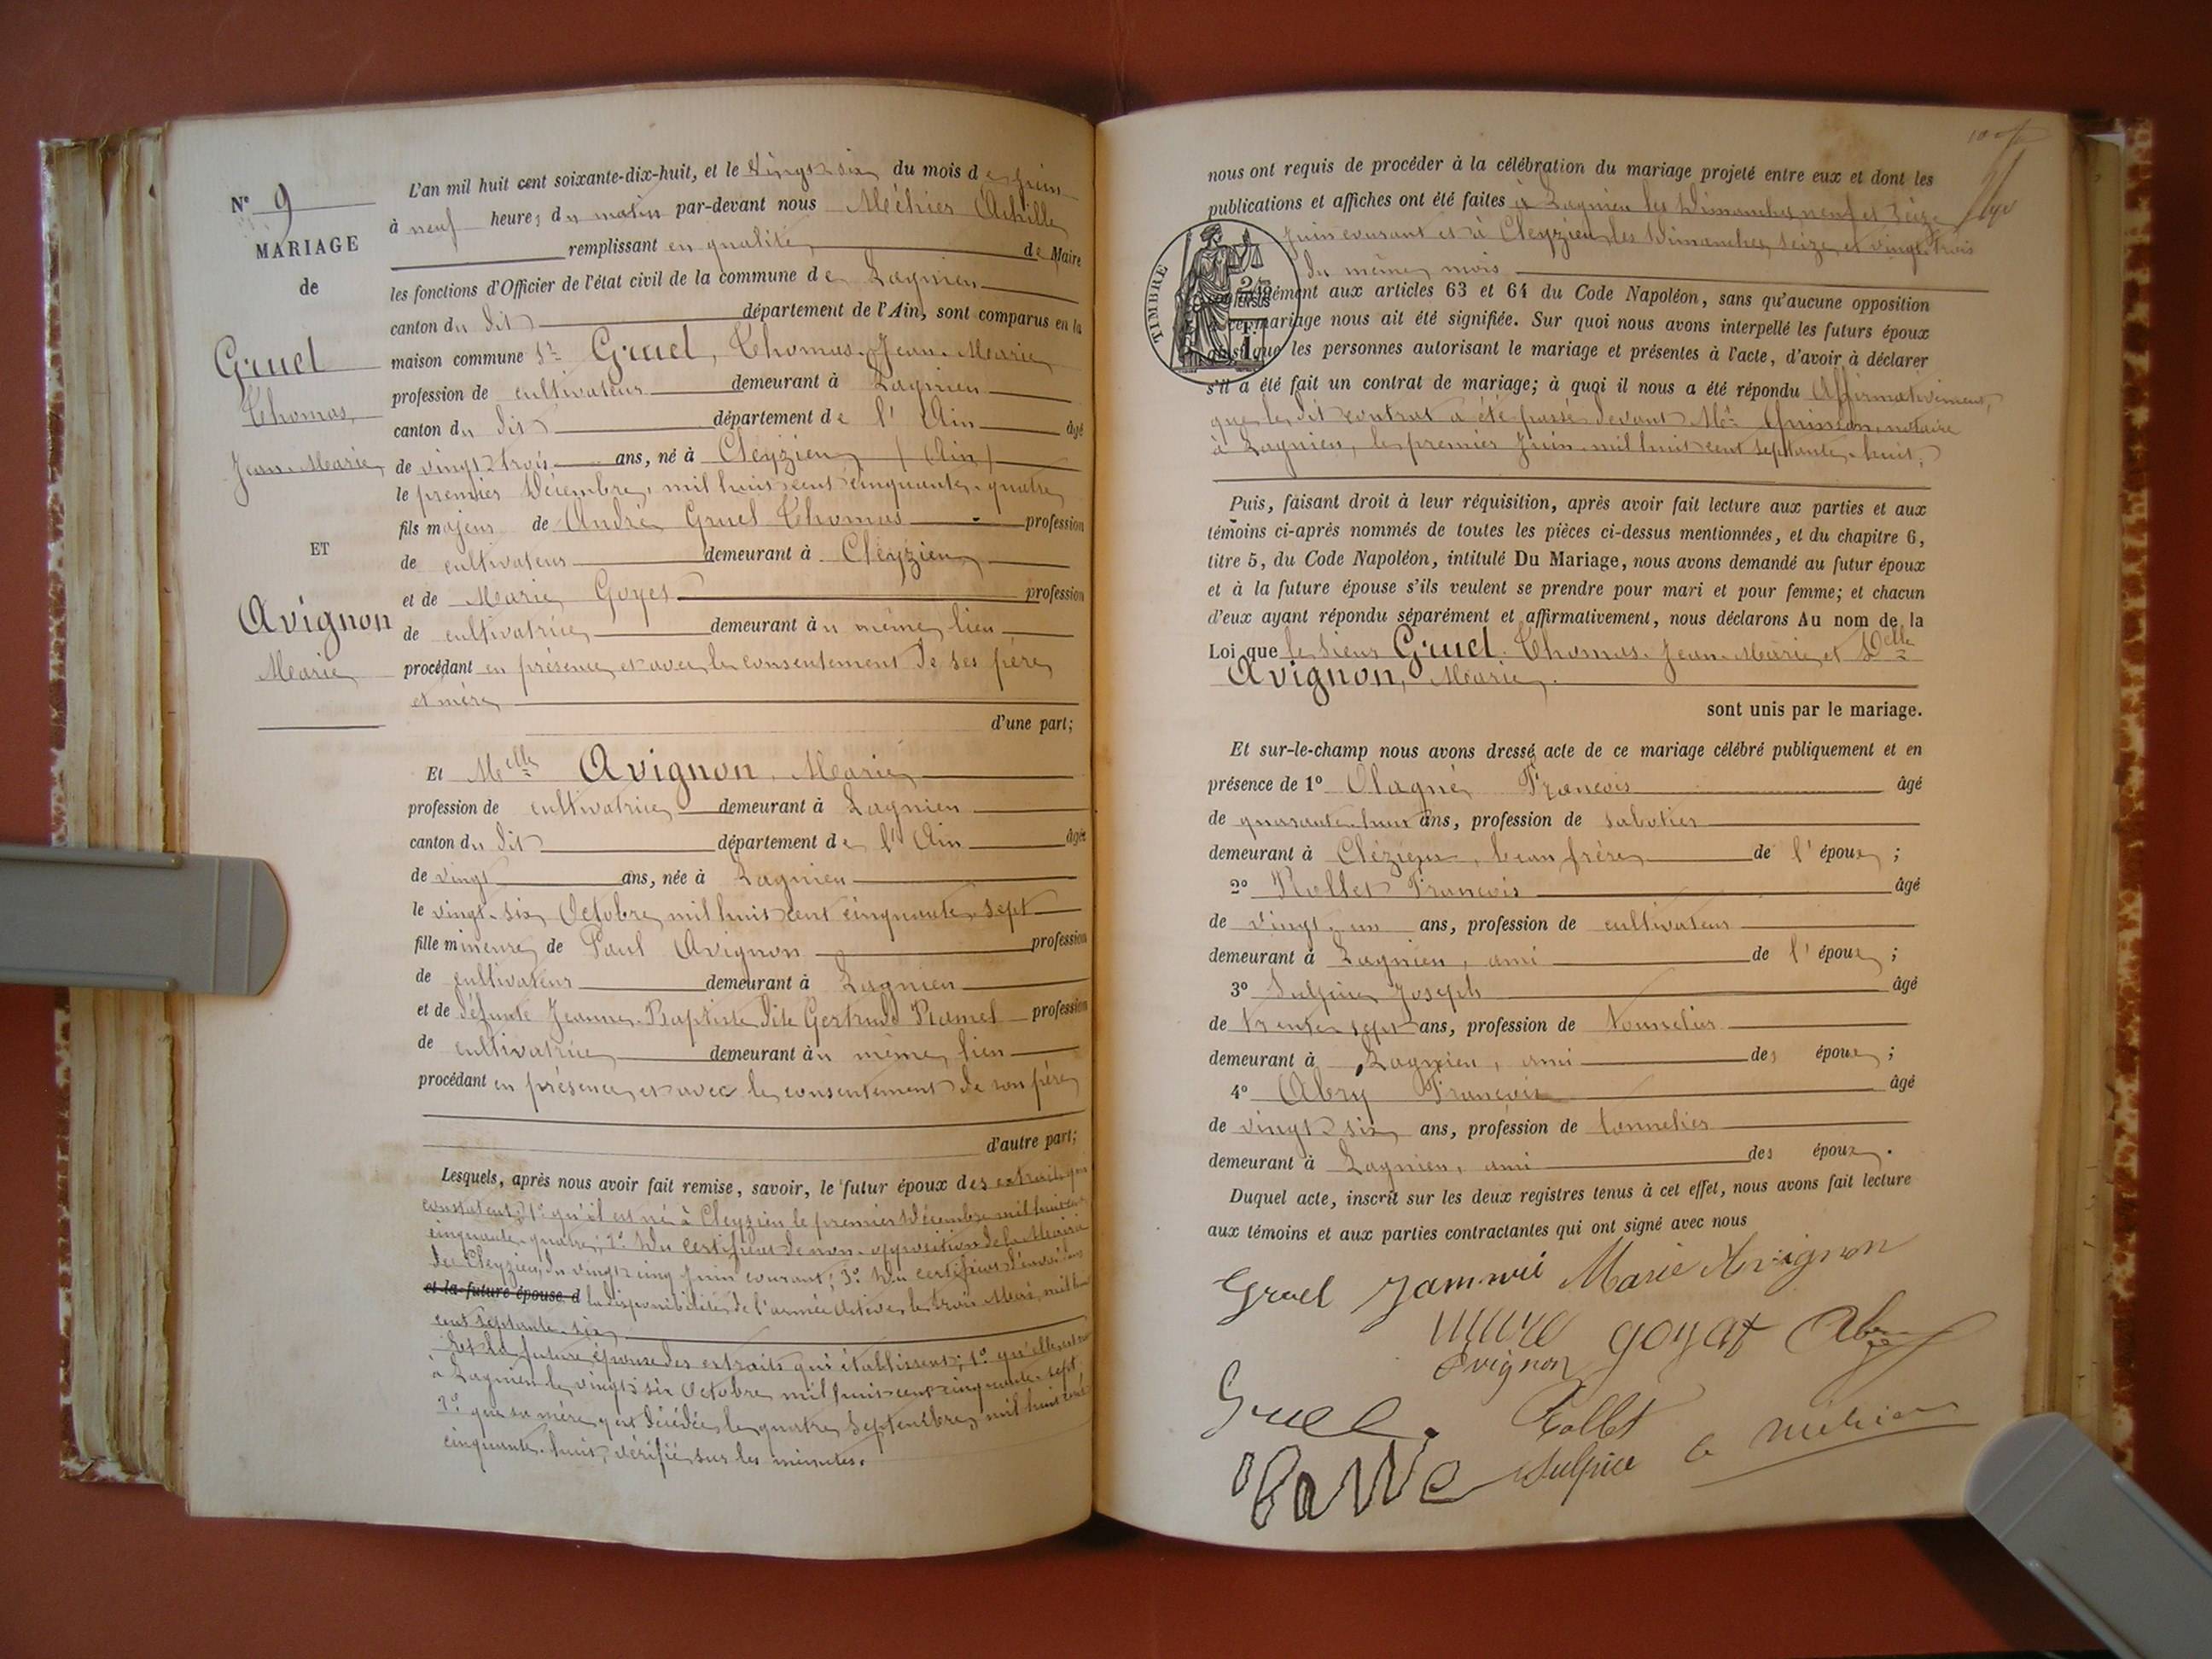 N° 9
MARIAGE
de
Gruel
Thomas,
Jean-Marie
ET
Avignon
Marie
L'an mil huit cent soixante-dix-huit, et le vingt six du mois de juin
à neuf heures du matin par-devant nous Méhier Achille
remplissant en qualité de Maire
les fonctions d'Officier de l'état civil de la commune de Lagnieu
canton du dit département de l'Ain, sont comparus en la
maison commune Sr Gruel, Thomas-Jean-Marie
profession de cultivateur demeurant à Lagnieu
canton du dit département de l'Ain âgé
de vingt trois ans, né à Cleyzieu (Ain)
le premier Décembre, mil huit cent cinquante-quatre
fils majeur de André Gruel Thomas profession
de cultivateur demeurant à Cleyzieu
et de Marie Goyet profession
de cultivatrice demeurant au même lieu
procédant en présence et avec le consentement de ses père
et mère
d'une part;
Et Melle Avignon, Marie
profession de cultivatrice demeurant à Lagnieu
canton du dit département de l'Ain âgée
de vingt ans, née à Lagnieu
le vingt-six Octobre mil huit cent cinquante-sept
fille mineure de Paul Avignon profession
de cultivateur demeurant à Lagnieu
et de défunte Jeanne-Baptiste dite Gertrude Ramel profession
de cultivatrice demeurant au même lieu
procédant en présence et avec le consentement de son père
d'autre part;
Lesquels, après nous avoir fait remise, savoir, le futur époux des extraits qui
constatent; 1° qu'il est né à Cleyzieu le premier Décembre mil huit cent
cinquante-quatre; 2° Un certificat de non-opposition de la Mairie
de Cleyzieu, du vingt cinq juin courant; 3° Un certificat d'envoi dans
et la future épouse d la disponibilité de l'armée active, le trois Mars, mil huit
cent septante-six
Et la future épouse des extraits qui établissent; 1° qu'elle est née
à Lagnieu le vingt six Octobre mil huit cent cinquante-sept
2° que sa mère y est décédée le quatre Septembre mil huit cent
cinquante-huit, vérifié sur les minutes.
nous ont requis de procéder à la célébration du mariage projeté entre eux et dont les
publications et affiches ont été faites à Lagnieu les Dimanches neuf et seize
Juin courant et à Cleyzieu les Dimanches seize et vingt-trois
du même mois
TIMBRE
conformément aux articles 63 et 64 du Code Napoléon, sans qu'aucune opposition
à ce mariage nous ait été signifiée. Sur quoi nous avons interpellé les futurs époux
ainsi que les personnes autorisant le mariage et présentes à l'acte, d'avoir à déclarer
s'il a été fait un contrat de mariage; à quoi il nous a été répondu Affirmativement,
que le dit contrat a été passé devant Me Quinson, notaire
à Lagnieu, le premier Juin mil huit cent septante-huit;
Puis, faisant droit à leur réquisition, après avoir fait lecture aux parties et aux
témoins ci-après nommés de toutes les pièces ci-dessus mentionnées, et du chapitre 6,
titre 5, du Code Napoléon, intitulé Du Mariage, nous avons demandé au futur époux
et à la future épouse s'ils veulent se prendre pour mari et pour femme; et chacun
d'eux ayant répondu séparément et affirmativement, nous déclarons Au nom de la
Loi que le sieur Gruel Thomas-Jean-Marie et Delle
Avignon, Marie
sont unis par le mariage.
Et sur-le-champ nous avons dressé acte de ce mariage célébré publiquement et en
présence de 1° Olagné François âgé
de quarante-huit ans, profession de sabotier
demeurant à Clézieu, beau frère de l'époux;
2° Rollet François âgé
de vingt-un ans, profession de cultivateur
demeurant à Lagnieu, ami de l'époux;
3° Sulpice Joseph âgé
de trente sept ans, profession de tonnelier
demeurant à Lagnieu, ami des époux;
4° Abry François âgé
de vingt six ans, profession de tonnelier
demeurant à Lagnieu, ami des époux.
Duquel acte, inscrit sur les deux registres tenus à cet effet, nous avons fait lecture
aux témoins et aux parties contractantes qui ont signé avec nous
Gruel Marie Avignon
goyat Abry
avignon
Gruel. Rollet
Sulpice A Méhier